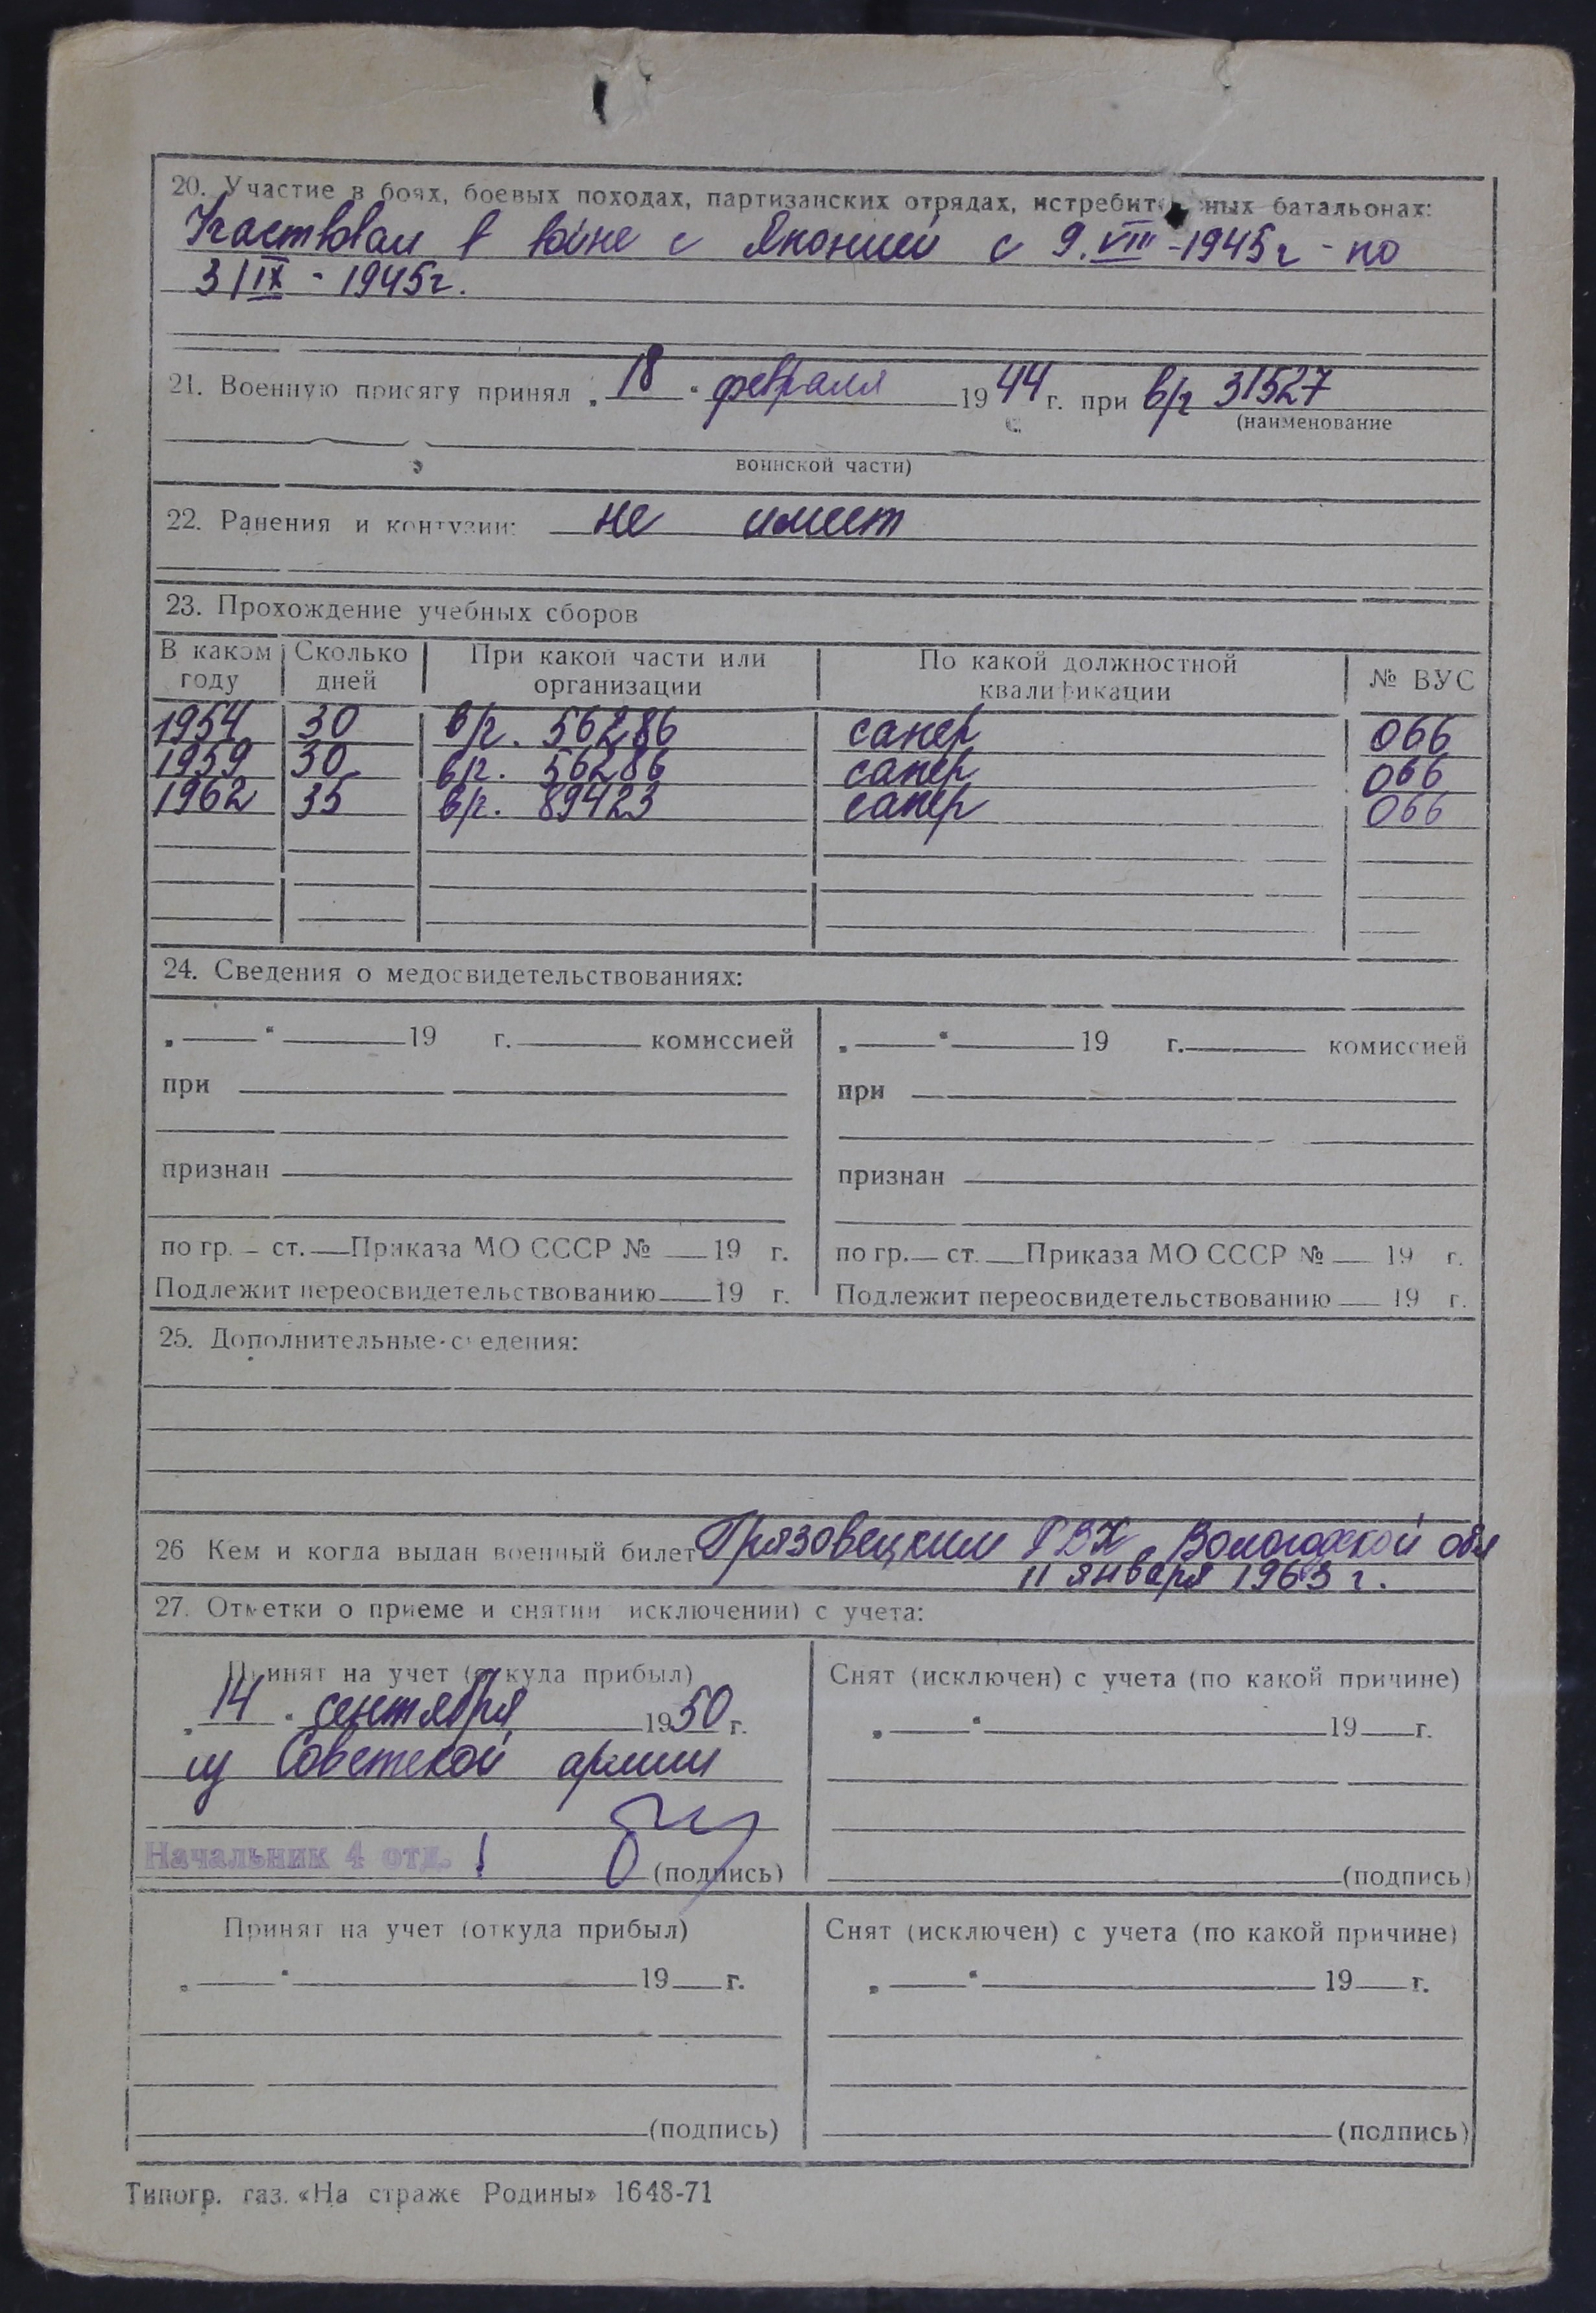 20. Участие в боях, боевых походах, партизанских отрядах, истребит ных батальонах:
Участвовал в войне с Японией с 9.VIII-1945г - по
3/IX - 1945г.
21. Военную присягу принял „ 18 “ февраля 1944 г. при в/ч 31527
(наименование
воинской части)
22. Ранения и контузии: не имеет
23. Прохождение учебных сборов
В каком году | Сколько дней | При какой части или организации | По какой должностной квалификации | № ВУС
1954 30 в/ч. 56286 сапер 066
1959 30 в/ч. 56286 сапер 066
1962 35 в/ч. 89423 сапер 066
24. Сведения о медосвидетельствованиях:
„ “ 19 г. комиссией
при
признан
по гр. – ст. Приказа МО СССР № 19 г.
Подлежит переосвидетельствованию 19 г.
„ “ 19 г. комиссией
при
признан
по гр. ст. Приказа МО СССР № 19 г.
Подлежит переосвидетельствованию 19 г.
25. Дополнительные с едения:
26 Кем и когда выдан военный билет Грязовецким РВК Вологодской обл
11 января 1963 г.
27. Отметки о приеме и снятии исключении) с учета:
Принят на учет (откуда прибыл)
„ 14 “ сентября 1950 г.
из Советской армии
Начальник 4 отд.
(подпись)
Снят (исключен) с учета (по какой причине)
„ “ 19 г.
(подпись)
Принят на учет (откуда прибыл)
„ “ 19 г.
(подпись)
Снят (исключен) с учета (по какой причине)
„ “ 19 г.
(подпись)
Типогр. газ. «На страже Родины» 1648-71